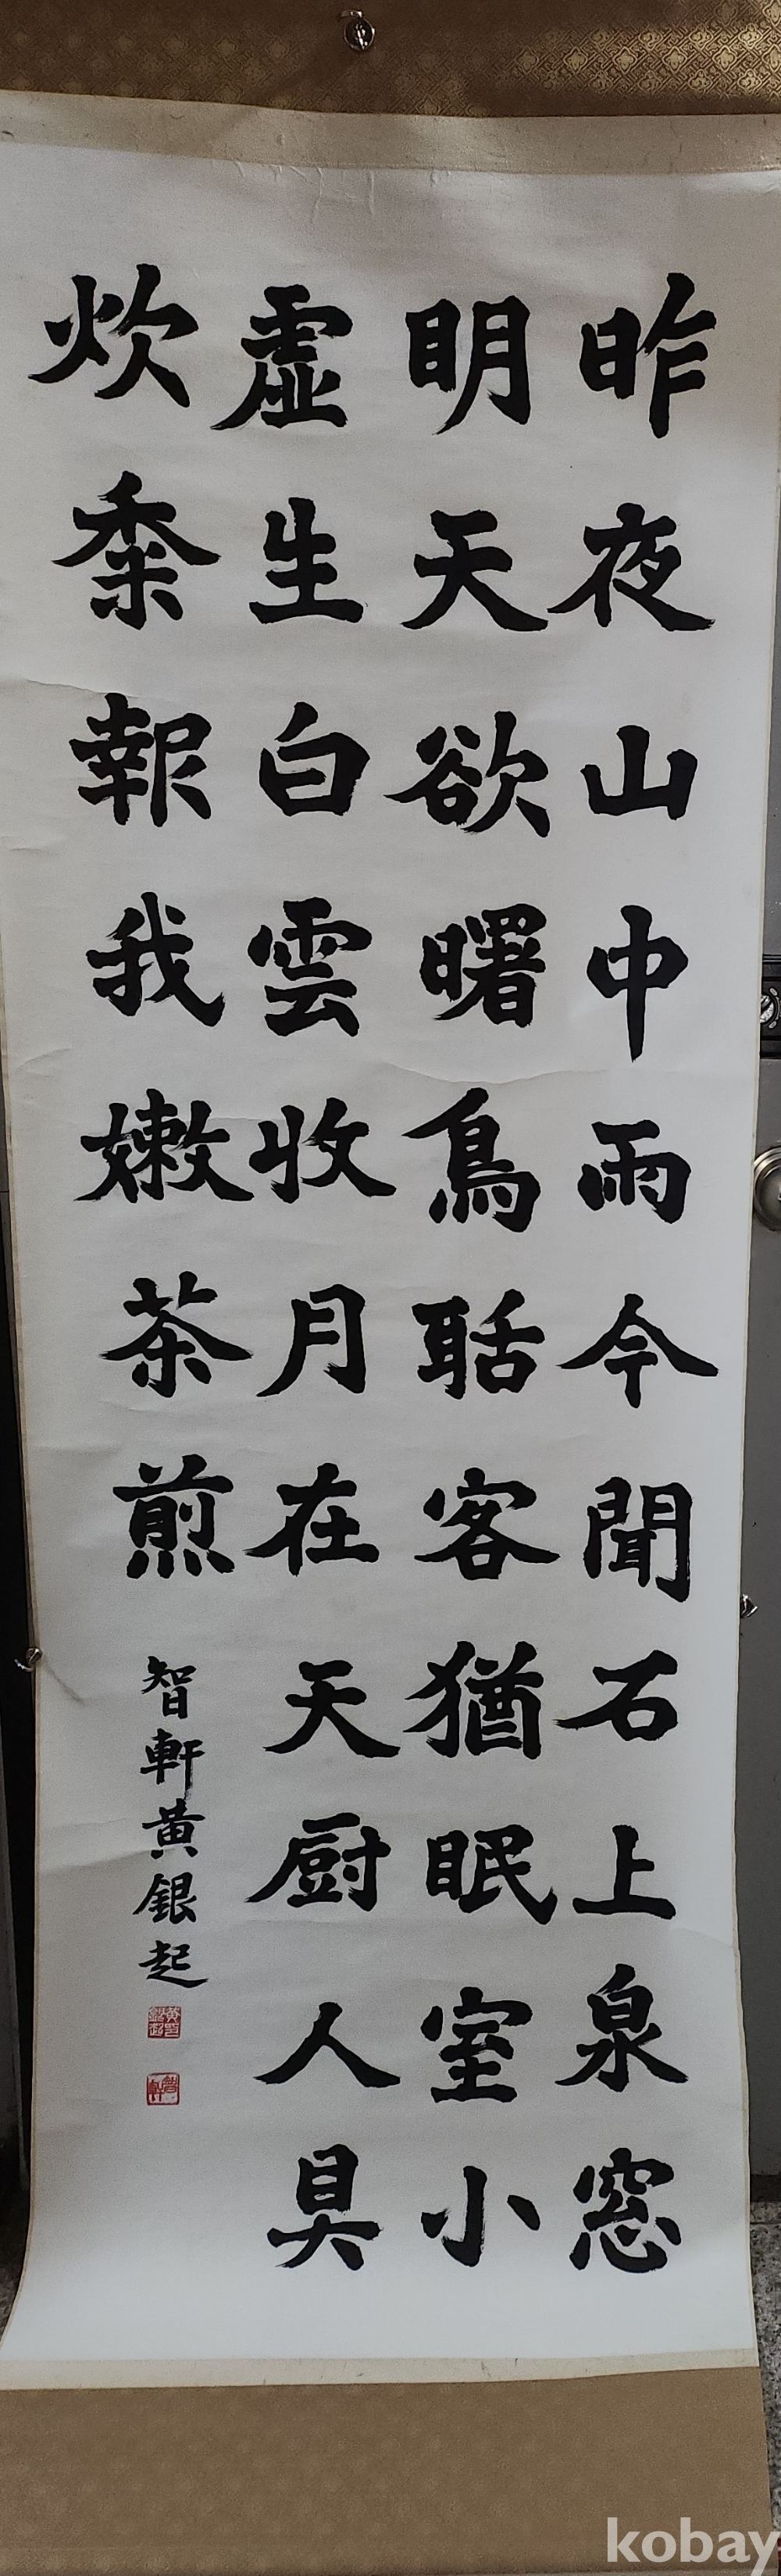 昨夜山中雨今聞石上泉窓
明天欲曙鳥聒客猶眠室小
虛生白雲收月在天厨人具
炊黍報我嫩茶煎
智軒黃銀起
kobay